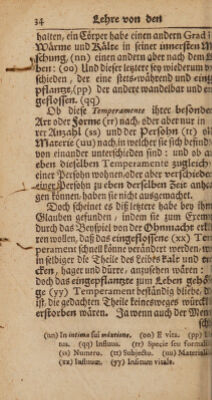 34 Lehre von den
halten, ein Cörper habe einen andern Grad i
Wärme und Kälte in seiner innersten M
schung, (nn) einen andern aber nach dem L
ben: (oo) Und dieser letztere sey wiederum v
schieden, der eine stets-während und eing
pflantzte, (pp) der andere wandelbar und e
geflossen. (qq)
Ob diese Temperamente ihrer besonder
Art oder Forme (rr) nach, oder aber nur in
rer Anzahl (ss) und der Persohn (tt) o
Materie (uu) nach, in welcher sie sich befind
von einander unterschieden sind: und ob a
eben dieselben Temperamente zugleich
einer Persohn wohnen, oder aber verschieden
einer Persohn zu eben derselben Zeit anha
gen können, haben sie nicht ausgemacht.
Doch scheinet es daß letztere habe bey ihn
Glauben gefunden, indem sie zum Exem
durch das Beyspiel von der Ohnmacht erkl
ren wollen, daß das eingeflossene (xx) Tem
perament schnell könne verändert werden, w
in selbiger die Theile des Leibes kalt und e
cken, hager und dürre, anzusehen wären:
doch das eingepflantzte zum Leben gehö
ge (yy) Temperament beständig bliebe, d
ist, die gedachten Theile keinesweges würckl
erstorben wären. Ja wenn du dich umsehe
(nn) In intima sui mixtione. (oo) E vita. (pp) I
tus. (qq) Influus. (rr) Specie seu formali
(ss) Numero. (tt) Subjecto. (uu) Materiali
(xx) Influum. (yy) Insitum vitale.